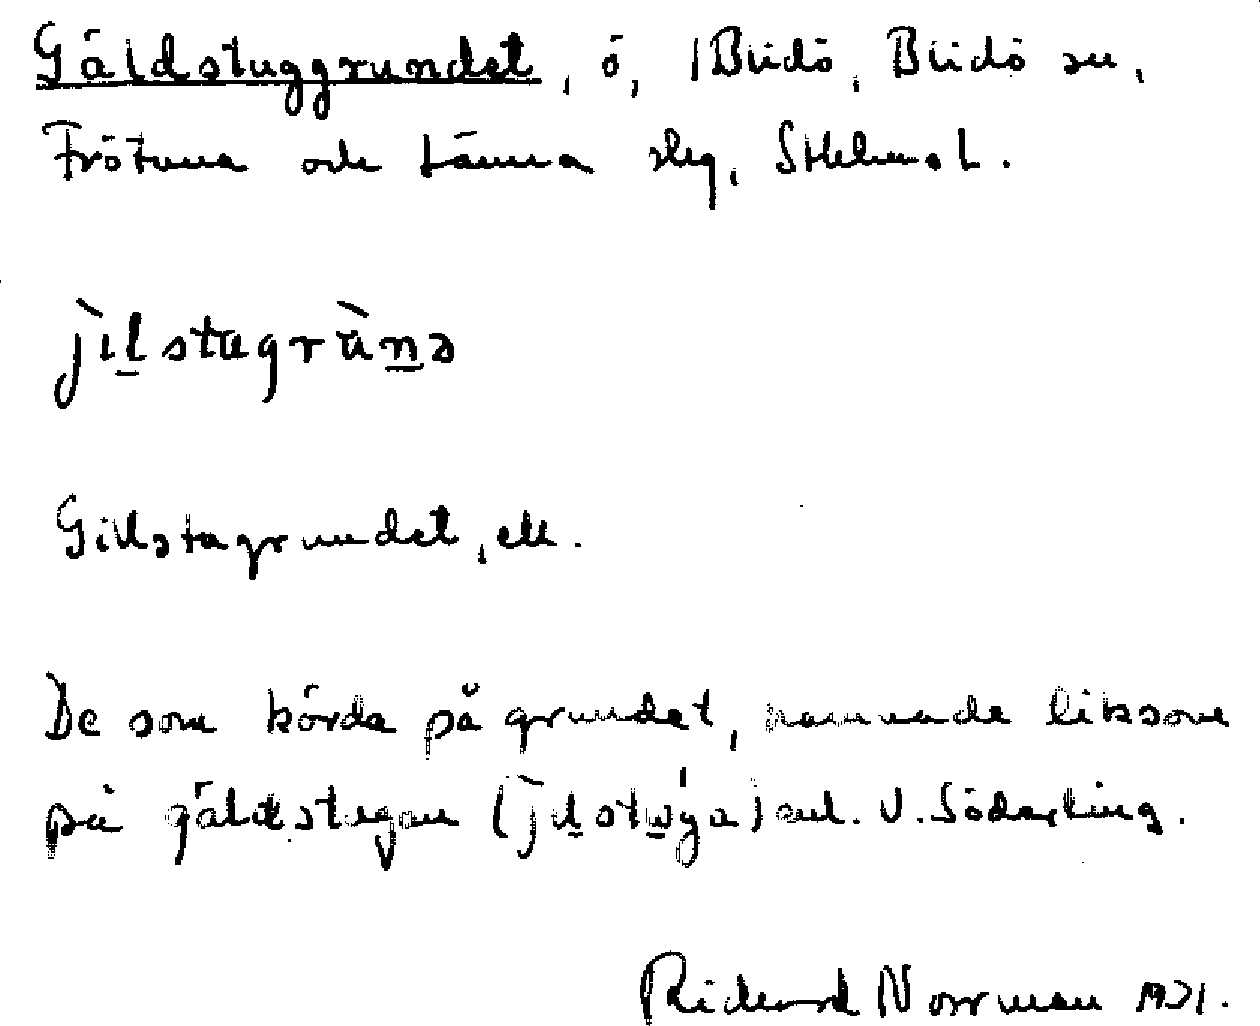 Gäldstuggrundet, ö, /Blidö, Blidö sn,
Frötuna och Länna skg, Sthlms L.
jìlstugrùnə
Gillstagrundet, ek.
De som körda på grundet, hamnade liksom
på gäldstugan (jìlstuga) enl. V. Söderling.
Rickard Norrman 1931.